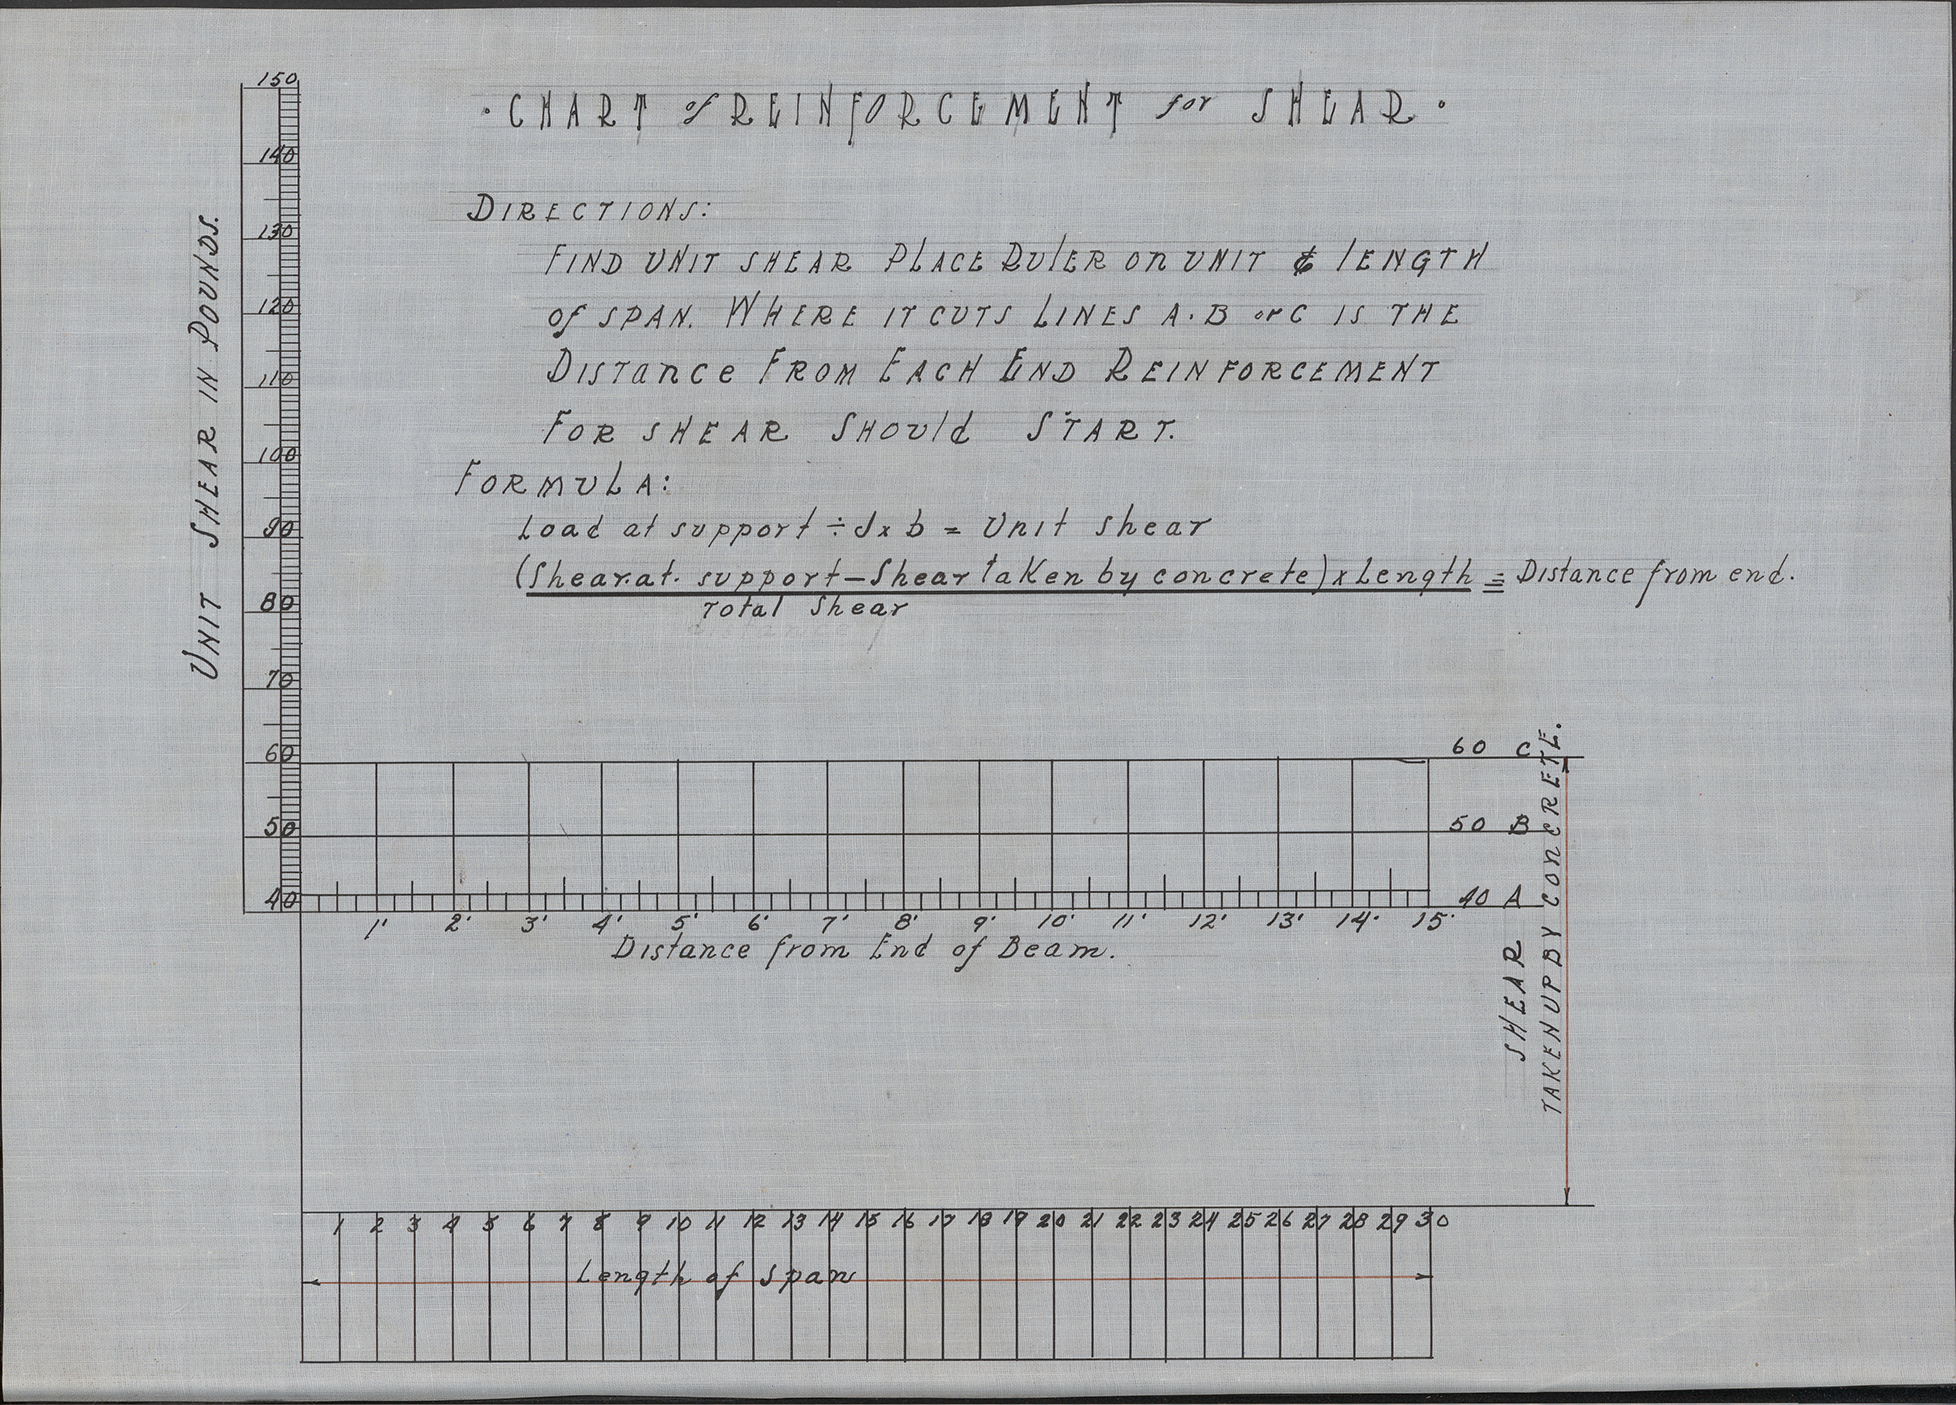 · CHART of REINFORCEMENT for SHEAR ·
DIRECTIONS:
FIND UNIT SHEAR PLACE RULER on UNIT & LENGTH
of SPAN. WHERE IT CUTS LINES A. B or C IS THE
DISTance FROM EACH END REINFORCEMENT
FOR SHEAR SHOUld START.
FORMULA:
Load at support ÷ J x b = Unit shear
(Shear.at. support – Shear taken by concrete) x Length = Distance from end.
Total Shear
UNIT SHEAR IN POUNDS.
150
140
130
120
110
100
90
80
70
60
50
40
60 C
50 B
40 A
1' 2' 3' 4' 5' 6' 7' 8' 9' 10' 11' 12' 13' 14' 15'
Distance from End of Beam.
SHEAR
TAKEN UP BY CONCRETE.
1 2 3 4 5 6 7 8 9 10 11 12 13 14 15 16 17 18 19 20 21 22 23 24 25 26 27 28 29 30
Length of span